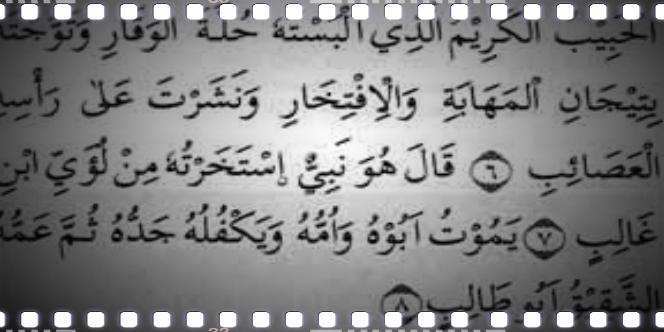 الْحَبِيْبُ الْكَرِيْمُ الَّذِي أَلْبَسْتَهُ حُلَّةَ الْوَقَارِ وَتَوَّجْتَهُ
بِتِيْجَانِ الْمَهَابَةِ وَالْاِفْتِخَارِ وَنَشَرْتَ عَلَىٰ رَأْسِهِ
الْعَصَائِبِ ﴿٦﴾ قَالَ هُوَ نَبِيٌّ اِسْتَخَرْتُهُ مِنْ لُؤَيِّ ابْنِ
غَالِبٍ ﴿٧﴾ يَمُوْتُ اَبُوْهُ وَاُمُّهُ وَيَكْفُلُهُ جَدُّهُ ثُمَّ عَمُّهُ
الشَّقِيْقُ اَبُو طَالِبٍ ﴿٨﴾